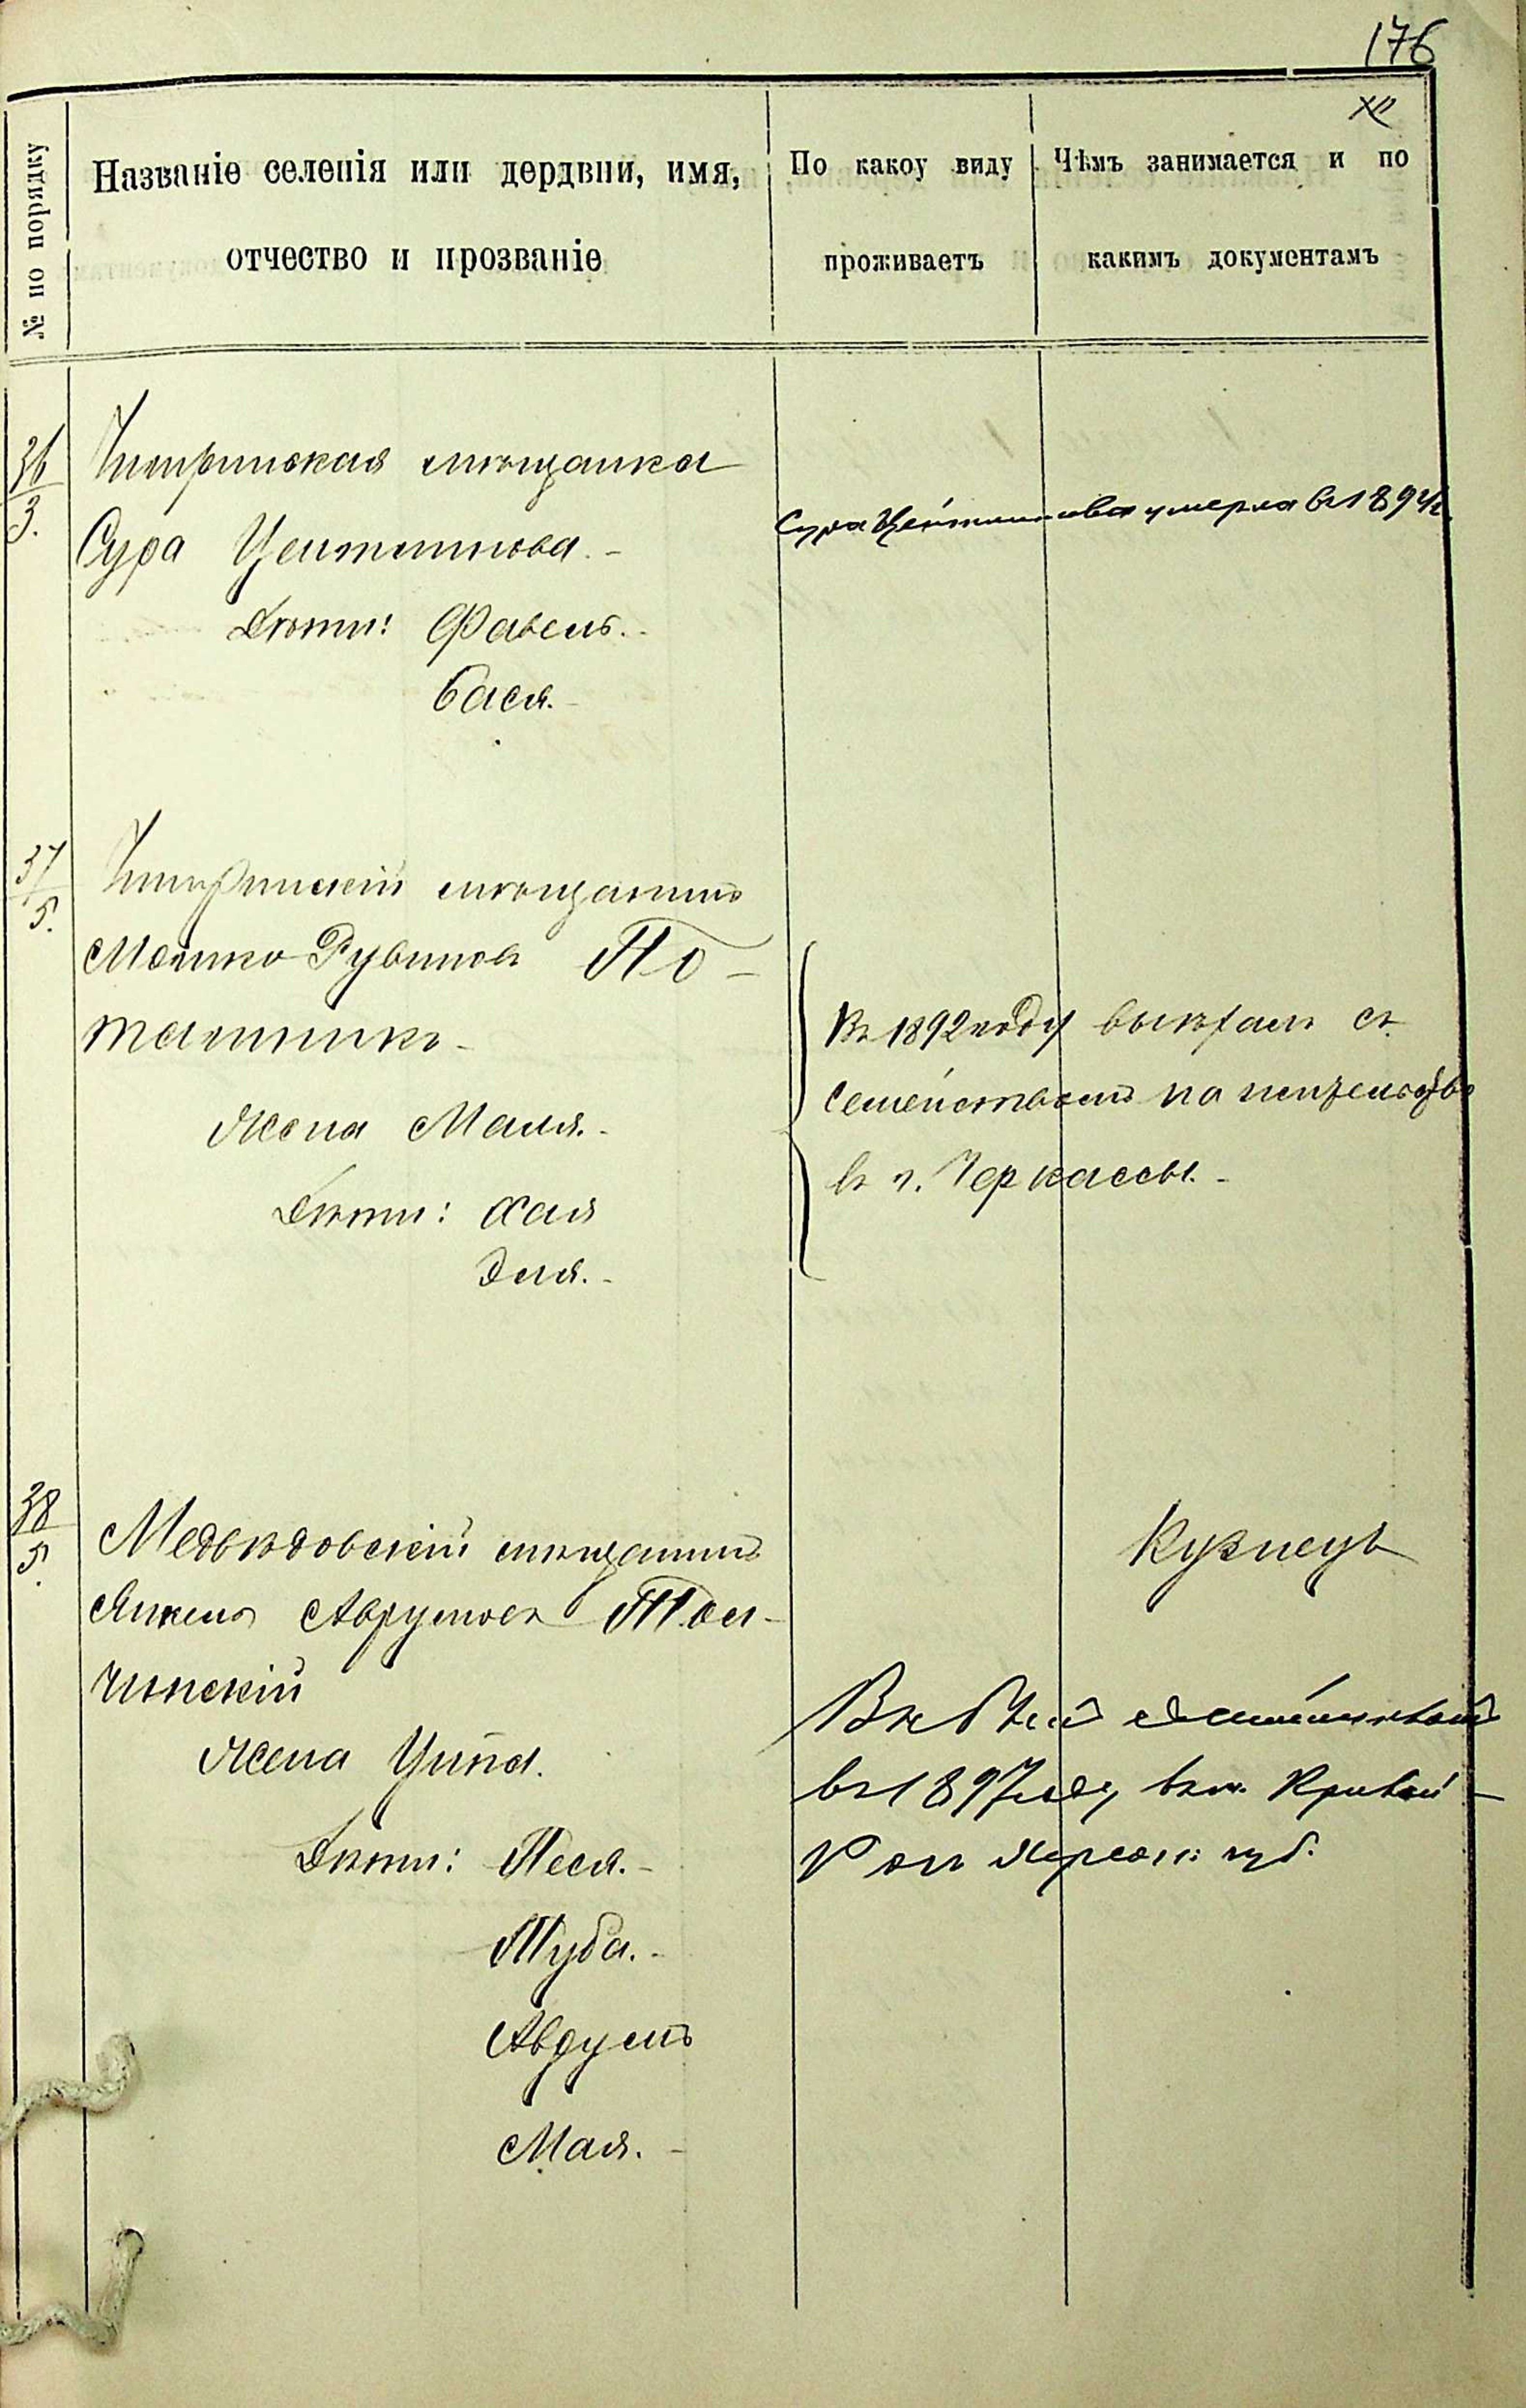 176
№ по порядку
Названіе селенія или дердвни, имя,
отчество и прозваніе
По какоу виду
проживаетъ
Чѣмъ занимается и по
какимъ документамъ
36
3.
Чигринская мѣщанка
Сура Цейтлинова.-
Дѣти: Фавель.-
Бася.-
Сура Цейтлинова умерла въ 1894 г.
37
5.
Чигринскій мѣщанинъ
Мошко Рувиновъ По-
ташникъ-
Жена Маля.-
Дѣти: Хая
Эля.-
Въ 1892 году выѣхалъ съ
семействомъ на жительство
въ г. Черкассы.-
38
5.
Медвѣдовскій мѣщанинъ
Янкель Аврумовъ Тол-
чинскій
Жена Ципа.
Дѣти: Песя.-
Туба.-
Аврумъ
Мая.-
Кузнецъ
семействомъ
въ 1897 году въ м. Кривой-
Рогъ Херсон: губ.